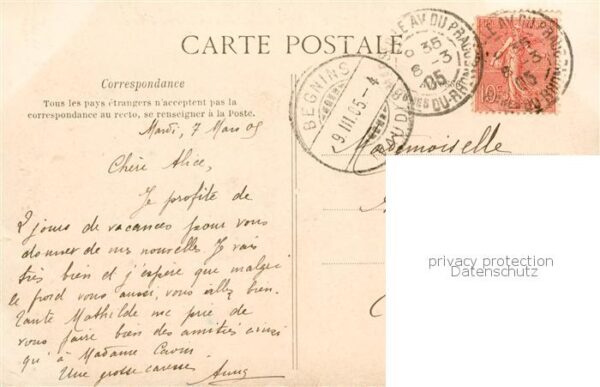 CARTE POSTALE
Correspondance
Tous les pays étrangers n'acceptent pas la
correspondance au recto, se renseigner à la Poste.
Mardi, 7 Mars 05
Chère Alice,
Je profite de
2 jours de vacances pour vous
donner de mes nouvelles. Je vais
très bien et j'espère que malgré
le froid vous aussi, vous allez bien.
Tante Mathilde me prie de
vous faire bien des amitiés ainsi
qu'à Madame
Une grosse caresse
Mademoiselle
BEGNINS
9 III 05 - 4
VAUD
LE AV. DU PRADO
35
6 - 3
05
DU-RHONE
35
6 3
05
DU-RHONE
10c
privacy protection
Datenschutz